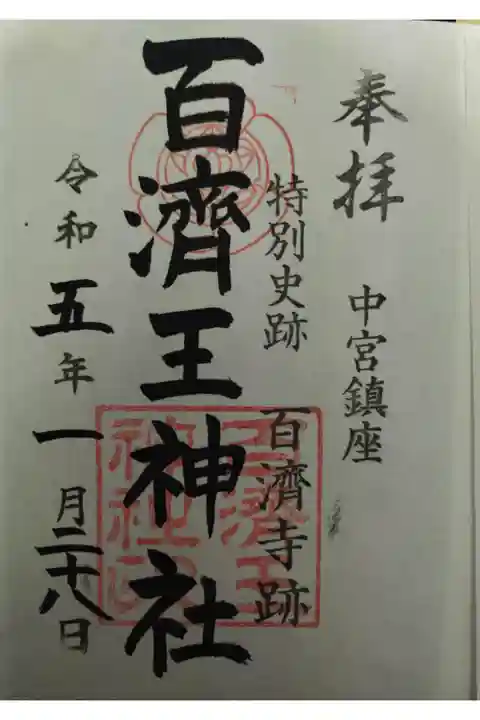 奉拝
中宮鎮座
特別史跡 百濟寺跡
百濟王神社
令和五年一月二十八日
百濟王
神社印